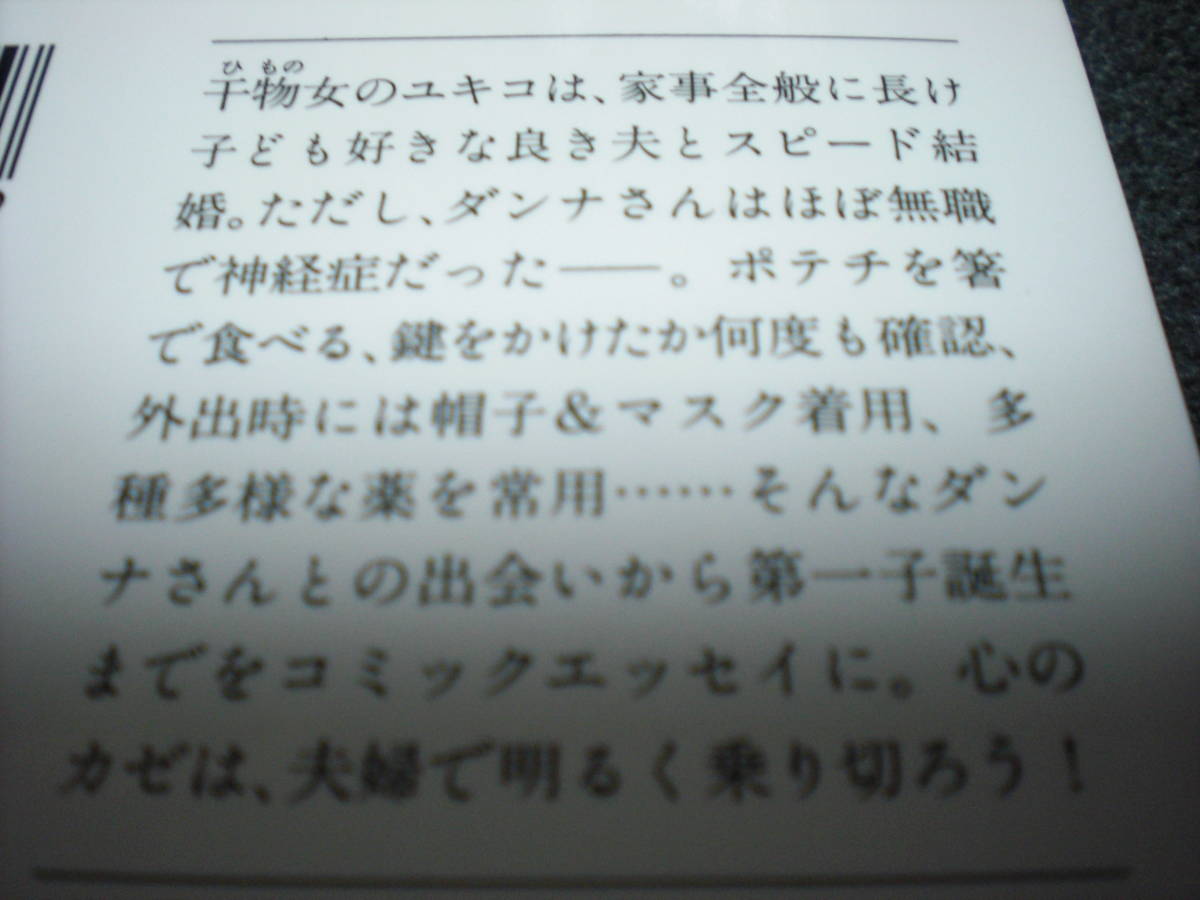 ひもの
干物女のユキコは、家事全般に長け
子ども好きな良き夫とスピード結
婚。ただし、ダンナさんはほぼ無職
で神経症だった――。ポテチを箸
で食べる、鍵をかけたか何度も確認、
外出時には帽子&マスク着用、多
種多様な薬を常用……そんなダン
ナさんとの出会いから第一子誕生
までをコミックエッセイに。心の
カゼは、夫婦で明るく乗り切ろう！